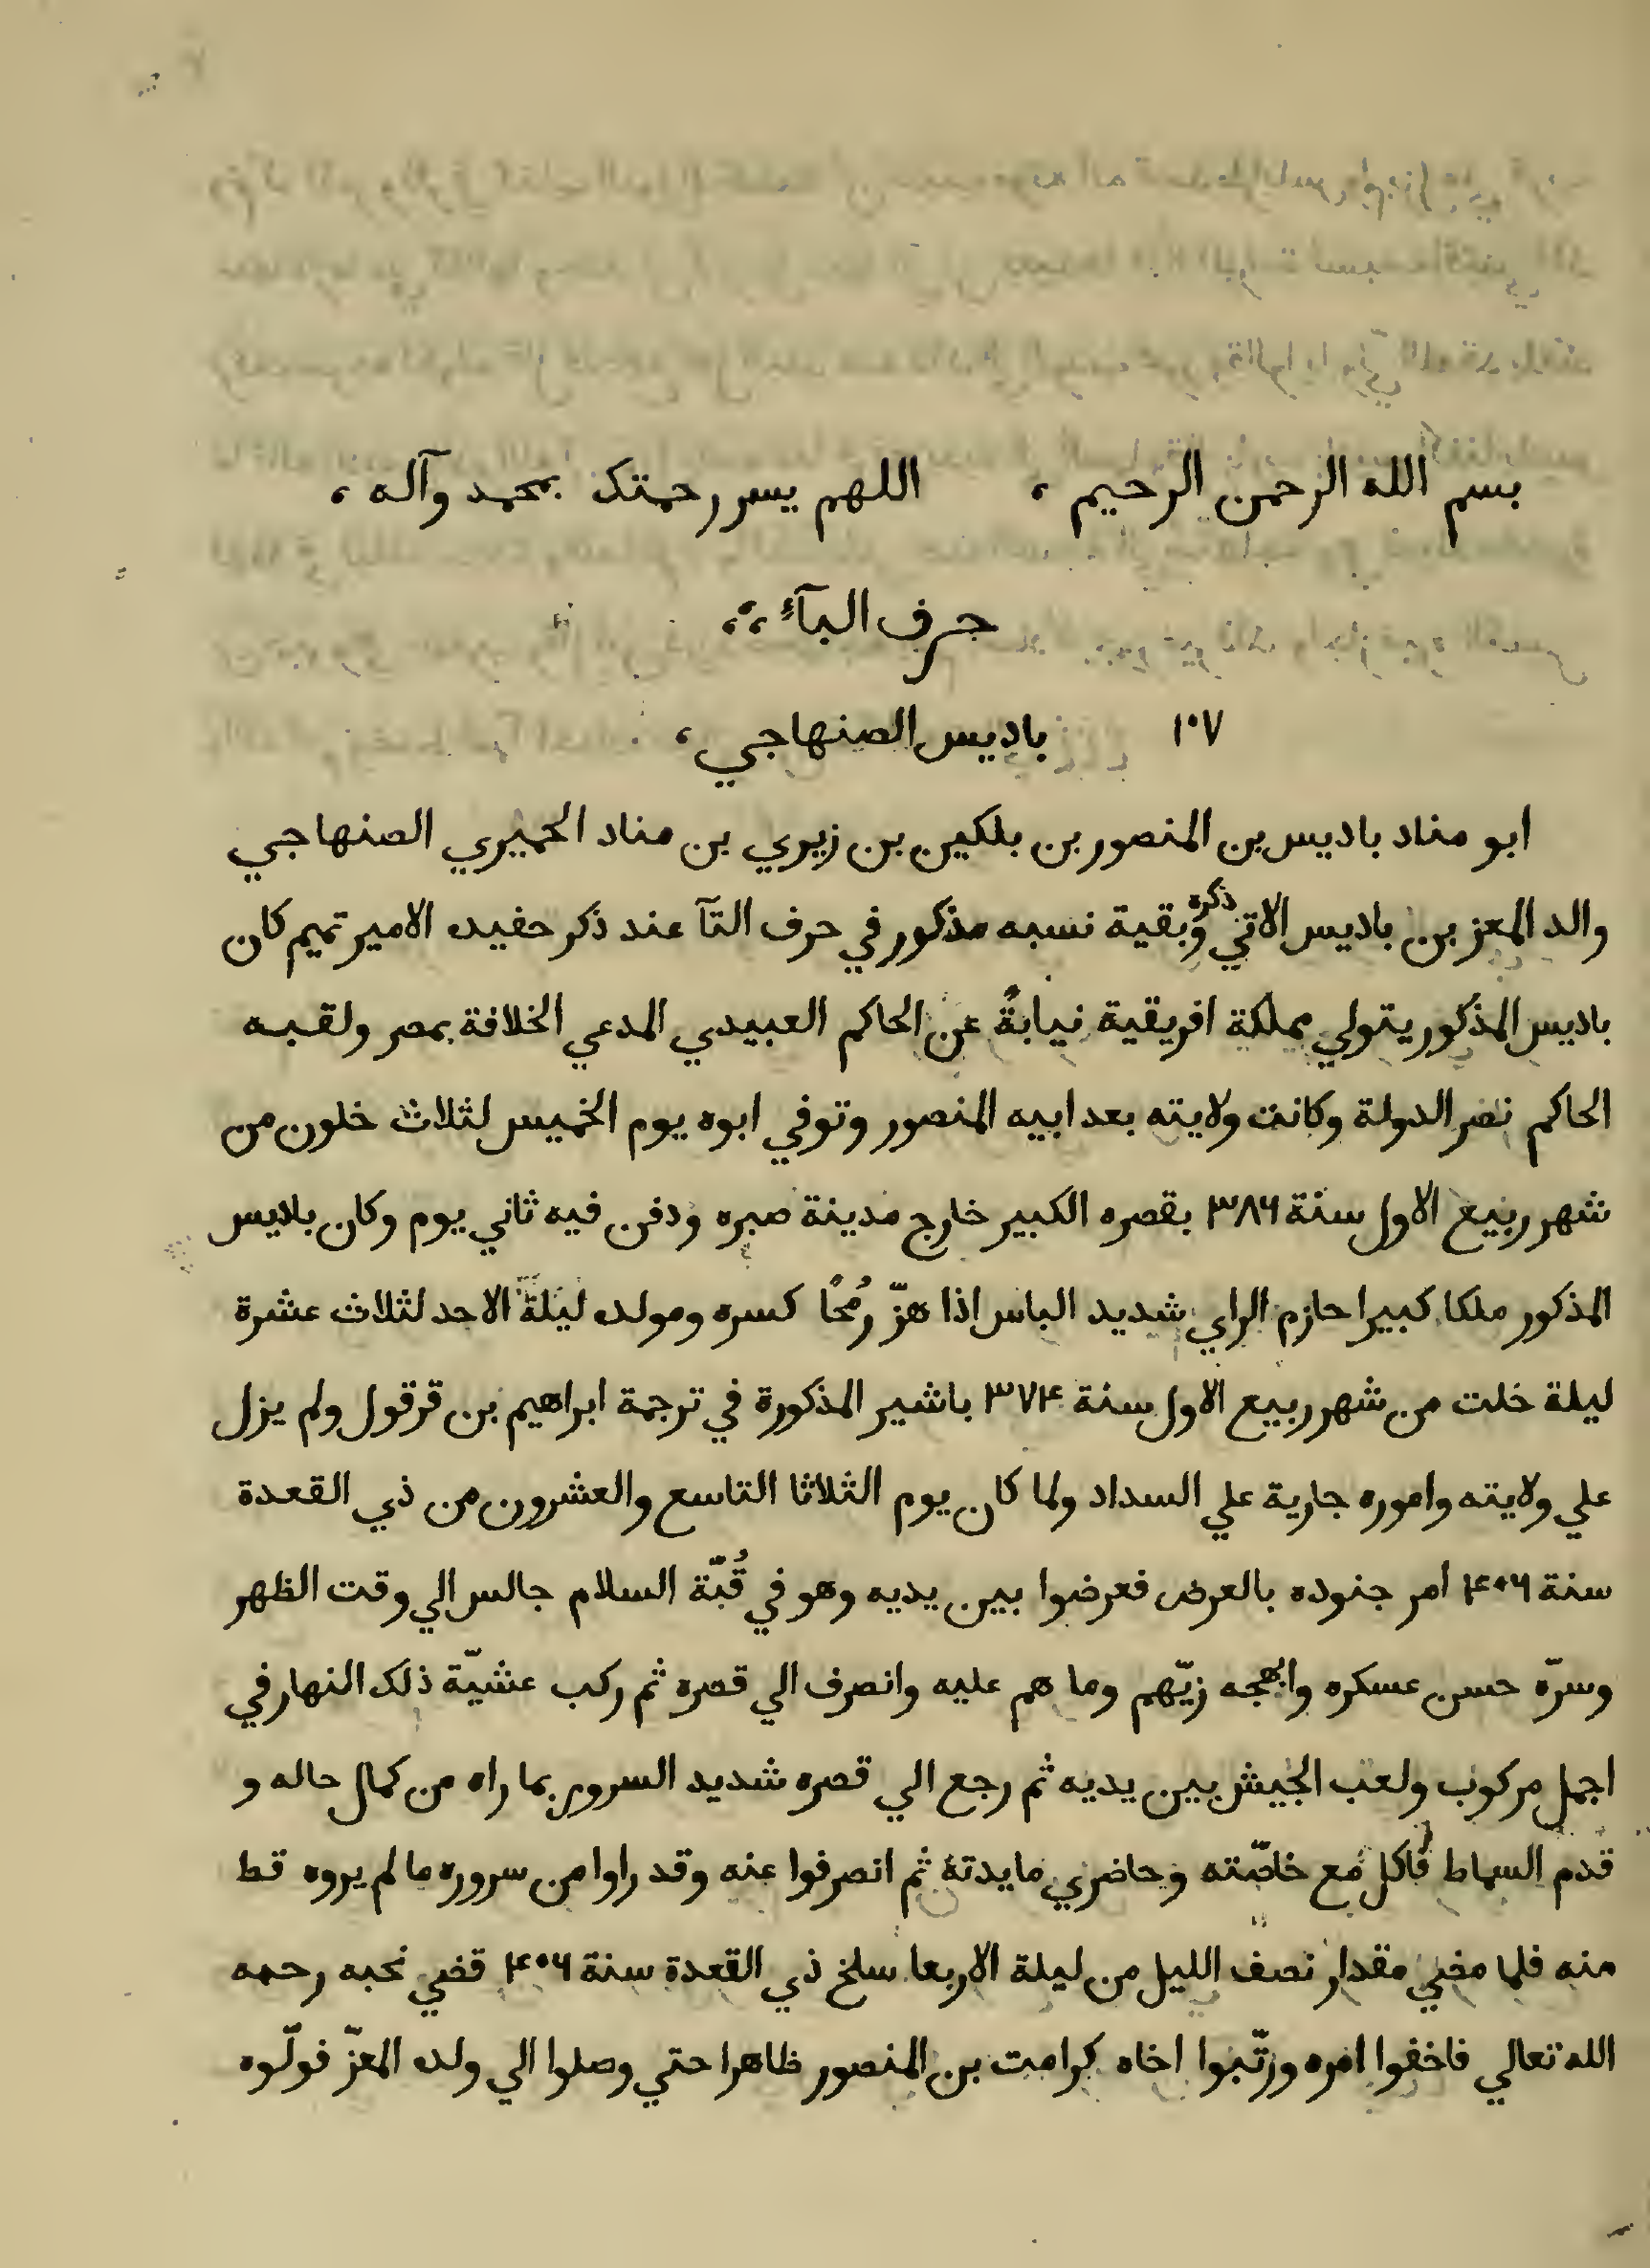 بسم الله الرحمن الرحيم ، اللهم يسر رحمتك بمحمد وآله ،
حرف البآء ،،
١٠٧ باديس الصنهاجي ،
ابو مناد باديس بن المنصور بن بلكين بن زيري بن مناد الحميري الصنهاجي
والد المعز بن باديس الاتي ذكره وبقية نسبه مذكور في حرف التآ عند ذكر حفيده الامير تميم كان
باديس المذكور يتولي مملكة افريقية نيابةً عن الحاكم العبيدي المدعي الخلافة بمصر ولقبه
الحاكم نصر الدولة وكانت ولايته بعد ابيه المنصور وتوفي ابوه يوم الخميس لثلاث خلون من
شهر ربيع الاول سنة ٣٨٦ بقصره الكبير خارج مدينة صبره ودفن فيه ثاني يوم وكان باديس
المذكور ملكا كبيرا حازم الراي شديد الباس اذا هزّ رُمحًا كسره ومولده ليلة الاحد لثلاث عشرة
ليلة خلت من شهر ربيع الاول سنة ٣٧٤ باشير المذكورة في ترجمة ابراهيم بن قرقول ولم يزل
علي ولايته واموره جارية علي السداد ولما كان يوم الثلاثا التاسع والعشرون من ذي القعدة
سنة ٤٠٦ امر جنوده بالعرض فعرضوا بين يديه وهو في قُبّة السلام جالس الي وقت الظهر
وسرّه حسن عسكره وابهجه زيّهم وما هم عليه وانصرف الي قصره ثم ركب عشيّة ذلك النهار في
اجمل مركوب ولعب الجيش بين يديه ثم رجع الي قصره شديد السرور بما راه من كمال حاله و
قدم السماط فاكل مع خاصّته وحاضري مايدته ثم انصرفوا عنه وقد راوا من سروره ما لم يروه قط
منه فلما مضي مقدار نصف الليل من ليلة الاربعا سلخ ذي القعدة سنة ٤٠٦ قضي نحبه رحمه
الله تعالي فاخفوا امره ورتّبوا اخاه كرامت بن المنصور ظاهرا حتي وصلوا الي ولده المعزّ فولّوه